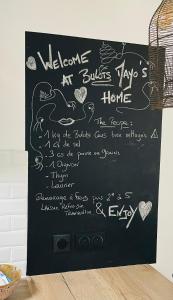 Welcome
AT Bulots Mayo's
Home
The Recipe:
- 1 kg de Bulots
- 1 CS de sel
- 3 cs de poivre en grains
- 1 Oignon
- Thym
- Laurier
Démarrage à froid puis
Laisser Refroidir
& ENJOY